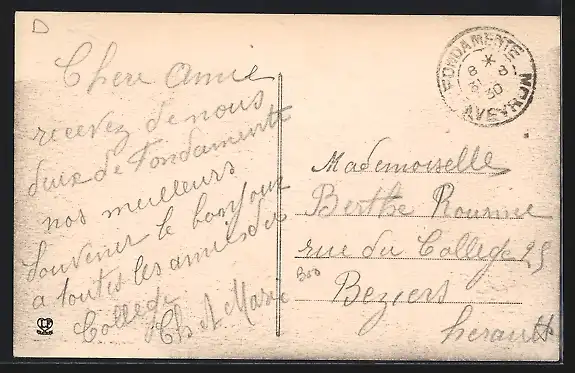 D
Chere Amie
recevez de nous
deux de Fondamente
nos meilleurs
Souvenir le bonjour
a toutes les amies du
College
Ch et Marie
FONDAMENTE
*
8 8
30
AVEYRON
Mademoiselle
Berthe
rue du College 25
Beziers
herault